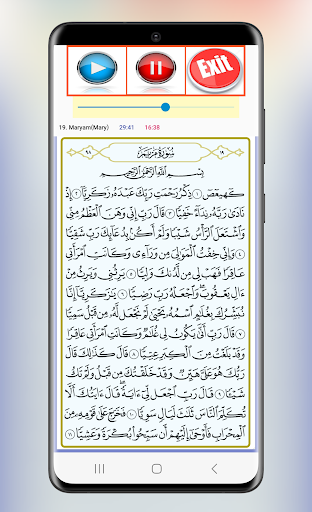 Exit
19. Maryam(Mary) 29:41 16:38
١٩ سُورَةُ مَرْيَمَ ٩٨
بِسْمِ اللَّهِ الرَّحْمَٰنِ الرَّحِيمِ
كٓهيعٓصٓ ١ ذِكْرُ رَحْمَتِ رَبِّكَ عَبْدَهُۥ زَكَرِيَّآ ٢ إِذْ
نَادَىٰ رَبَّهُۥ نِدَآءً خَفِيًّا ٣ قَالَ رَبِّ إِنِّى وَهَنَ ٱلْعَظْمُ مِنِّى
وَٱشْتَعَلَ ٱلرَّأْسُ شَيْبًا وَلَمْ أَكُنۢ بِدُعَآئِكَ رَبِّ شَقِيًّا
٤ وَإِنِّى خِفْتُ ٱلْمَوَٰلِىَ مِن وَرَآءِى وَكَانَتِ ٱمْرَأَتِى
عَاقِرًا فَهَبْ لِى مِن لَّدُنكَ وَلِيًّا ٥ يَرِثُنِى وَيَرِثُ مِنْ
ءَالِ يَعْقُوبَ ۖ وَٱجْعَلْهُ رَبِّ رَضِيًّا ٦ يَٰزَكَرِيَّآ إِنَّا
نُبَشِّرُكَ بِغُلَٰمٍ ٱسْمُهُۥ يَحْيَىٰ لَمْ نَجْعَل لَّهُۥ مِن قَبْلُ سَمِيًّا
٧ قَالَ رَبِّ أَنَّىٰ يَكُونُ لِى غُلَٰمٌ وَكَانَتِ ٱمْرَأَتِى عَاقِرًا
وَقَدْ بَلَغْتُ مِنَ ٱلْكِبَرِ عِتِيًّا ٨ قَالَ كَذَٰلِكَ قَالَ
رَبُّكَ هُوَ عَلَىَّ هَيِّنٌ وَقَدْ خَلَقْتُكَ مِن قَبْلُ وَلَمْ تَكُ
شَيْـًٔا ٩ قَالَ رَبِّ ٱجْعَل لِّىٓ ءَايَةً ۚ قَالَ ءَايَتُكَ أَلَّا
تُكَلِّمَ ٱلنَّاسَ ثَلَٰثَ لَيَالٍ سَوِيًّا ١٠ فَخَرَجَ عَلَىٰ قَوْمِهِۦ مِنَ
ٱلْمِحْرَابِ فَأَوْحَىٰٓ إِلَيْهِمْ أَن سَبِّحُوا۟ بُكْرَةً وَعَشِيًّا ١١